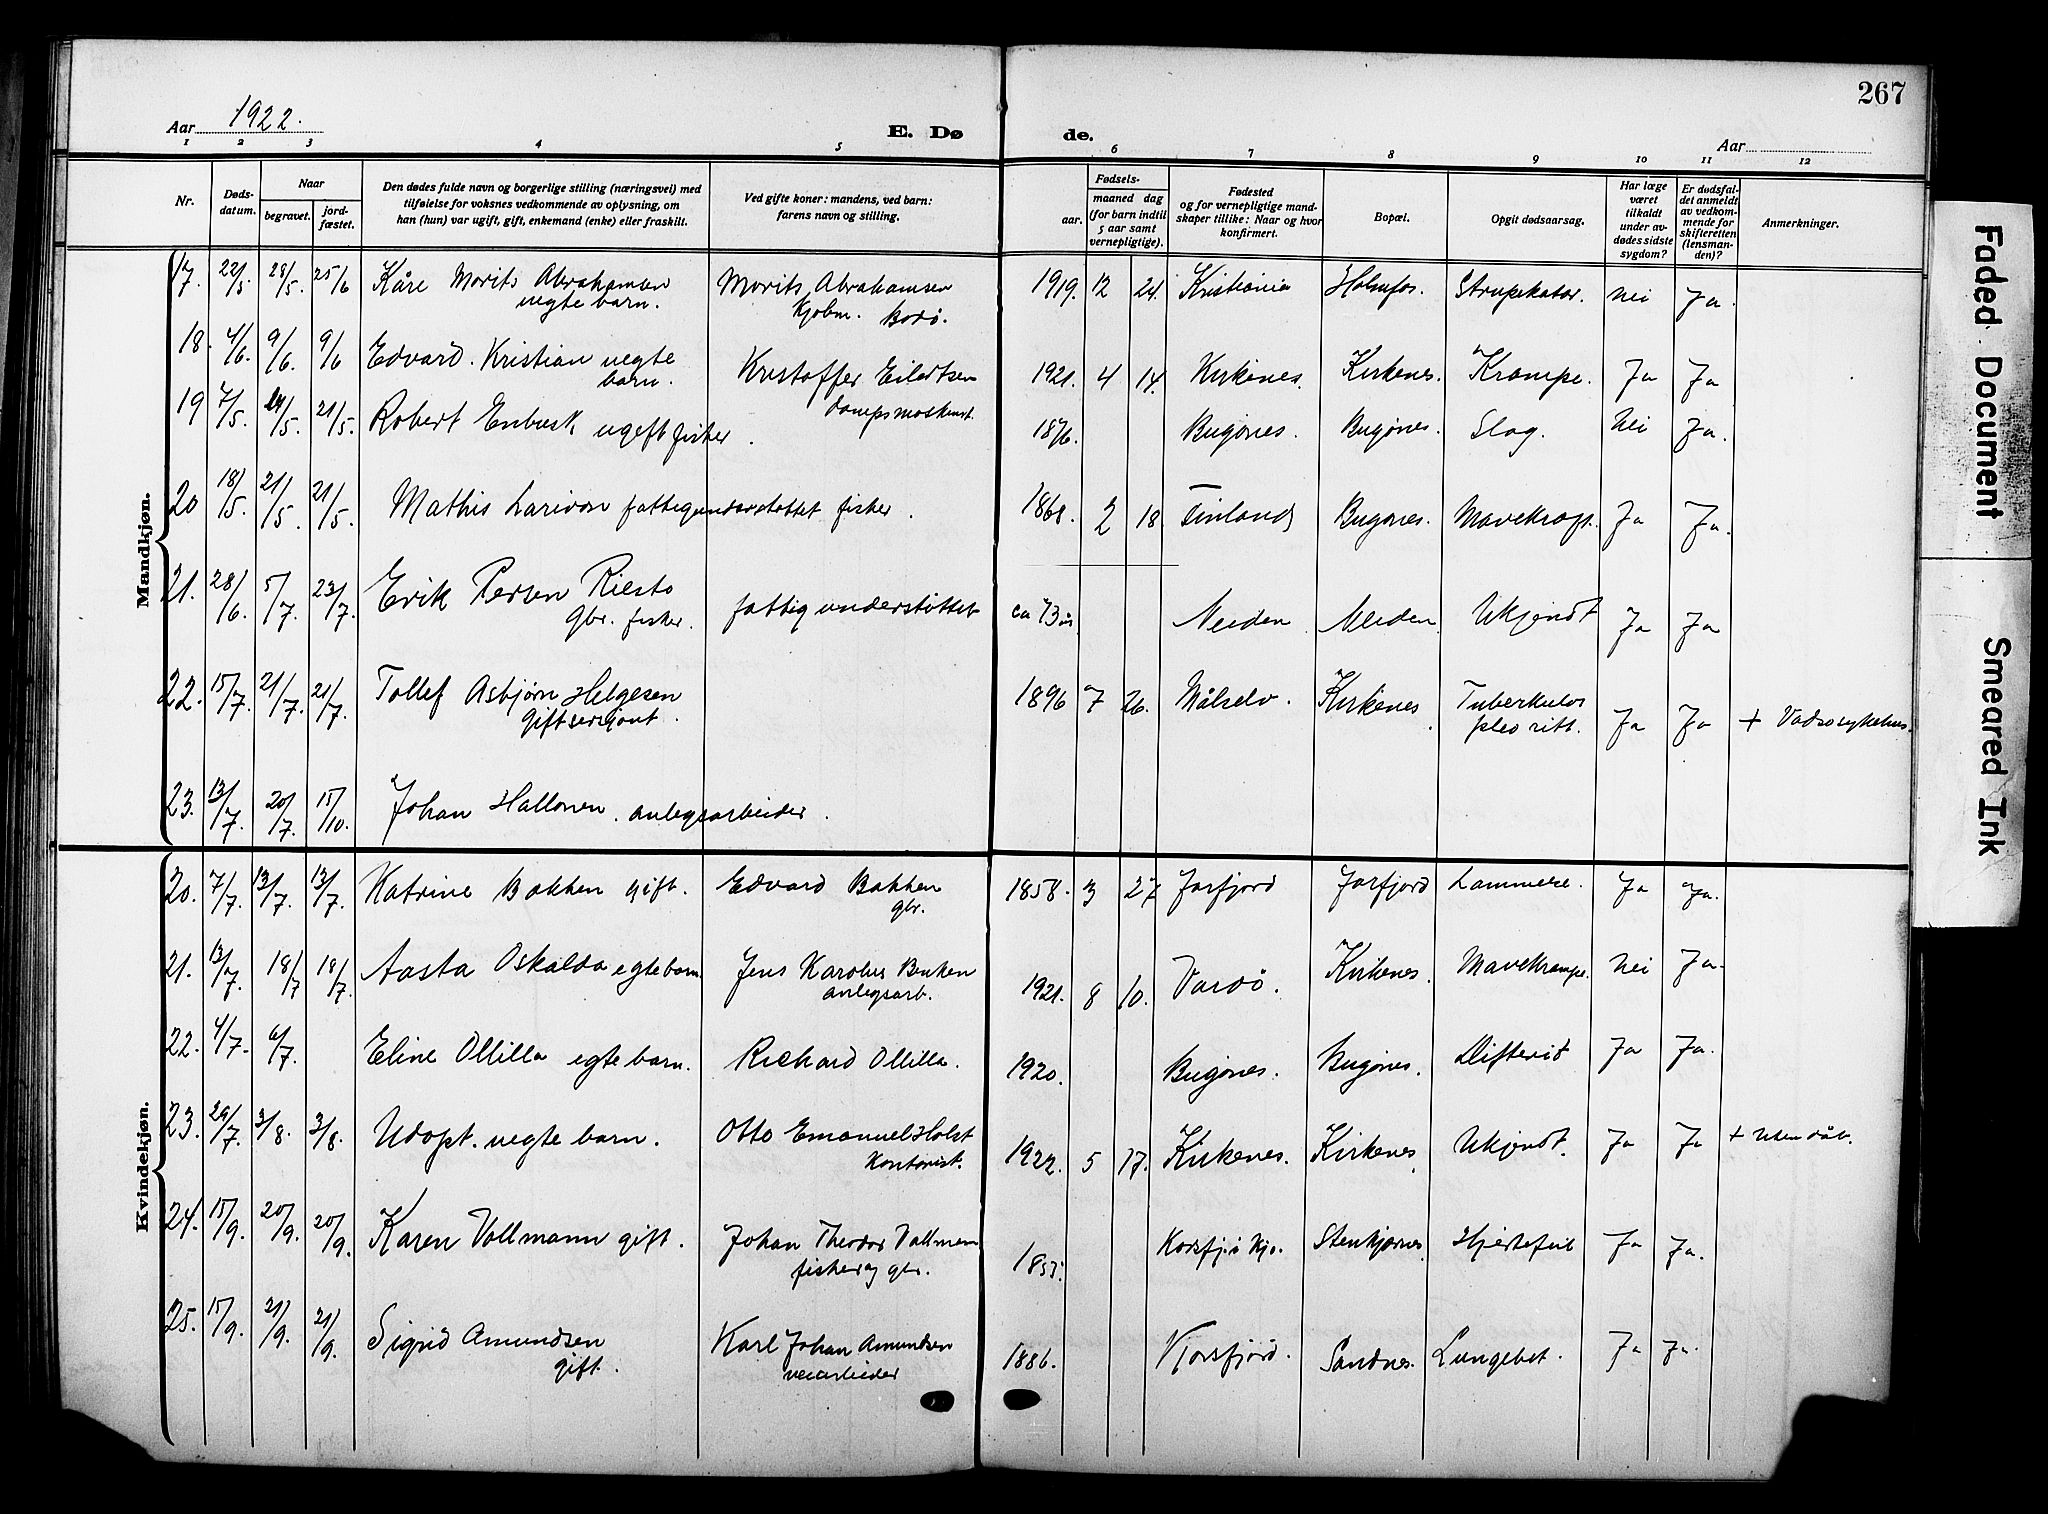 267
Aar 1922.
E. Dø de.
Aar
1 2 3 4 5 6 7 8 9 10 11 12
Nr.
Døds-
datum.
Naar
begravet.
jord-
fæstet.
Den dødes fulde navn og borgerlige stilling (næringsvei) med
tilføielse for voksnes vedkommende av oplysning, om
han (hun) var ugift, gift, enkemand (enke) eller fraskilt.
Ved gifte koner: mandens, ved barn:
farens navn og stilling.
Fødsels-
aar. maaned dag
(for barn indtil
5 aar samt
vernepligtige).
Fødested
og for vernepligtige mand-
skaper tillike: Naar og hvor
konfirmert.
Bopæl.
Opgit dødsaarsag.
Har læge
været
tilkaldt
under av-
dødes sidste
sygdom?
Er dødsfal-
det anmeldt
av vedkom-
mende for
skifteretten
(lensman-
den)?
Anmerkninger.
Mandkjøn.
17. 22/5. 28/5. 25/6 Kåre Morits Abrahamsen Morits Abrahamsen 1919. 12 24. Kristiania Holmfos. Strupekatar. Nei Ja.
uegte barn. Kjøbm. Bodø.
18. 4/6. 9/6. 9/6 Edvard Kristian uegte Kristoffer Eilertsen 1921. 4 14. Kirkenes. Kirkenes. Krampe. Ja Ja
barn.
19 7/5. 21/5. 21/5. Robert Enbusk ugift fisker. 1876. Bugønes. Bugønes. Slag. Nei Ja.
20 18/5. 21/5. 21/5. Mathis Larivon fattigunderstøttet fisker. 1868. 2 18. Finland Bugønes. Ja Ja.
21. 28/6 5/7. 23/7. Erik Persen Riesto fattigunderstøttet ca 73 år Neiden Neiden. Ukjendt Ja Ja
Gbr. fisker.
22. 15/7. 21/7. 21/7. Tollef Asbjørn Helgesen 1896 7 26. Målselv. Kirkenes. Tuberkuløs Ja Ja + Vadsø sykehus.
Gift sersjant. pleoritt.
23. 13/7. 20/7. 15/10. Johan Hallonen. anlegsarbeider.
Kvindekjøn.
20. 7/7. 13/7. 13/7. Katrine Bakken gift. Edvard Bakken 1858. 3 27 Jarfjord Jarfjord Lammelse. Ja Ja.
gbr.
21. 13/7. 18/7 18/7. Aasta Oskalda egte barn Jens Karolus Benken 1921. 8 10. Vardø. Kirkenes. Mavekrampe. Nei Ja.
anlegsarb.
22. 4/7. 6/7. Eline Ollilla egte barn. Richard Ollilla. 1920. Bugønes. Bugønes. Difterit Ja Ja.
23. 29/7. 3/8. 3/8. Udøpt. uegte barn. Otto Emanuel Holst 1922. 5 17. Kirkenes. Kirkenes. Ukjendt. Ja Ja + Uten dåb.
Kontorist.
24. 15/9. 20/9. 20/9. Karen Vollmann gift. Johan Theodor Vollmann 1853. Stenkjærnes Hjertefeil Ja Ja.
fisker og gbr.
25. 15/9. 21/9. 21/9. Sigrid Amundsen Karl Johan Amundsen 1886. Sandnes. Lungebet. Ja Ja.
gift. veiarbeider
Faded Document
Smeared Ink